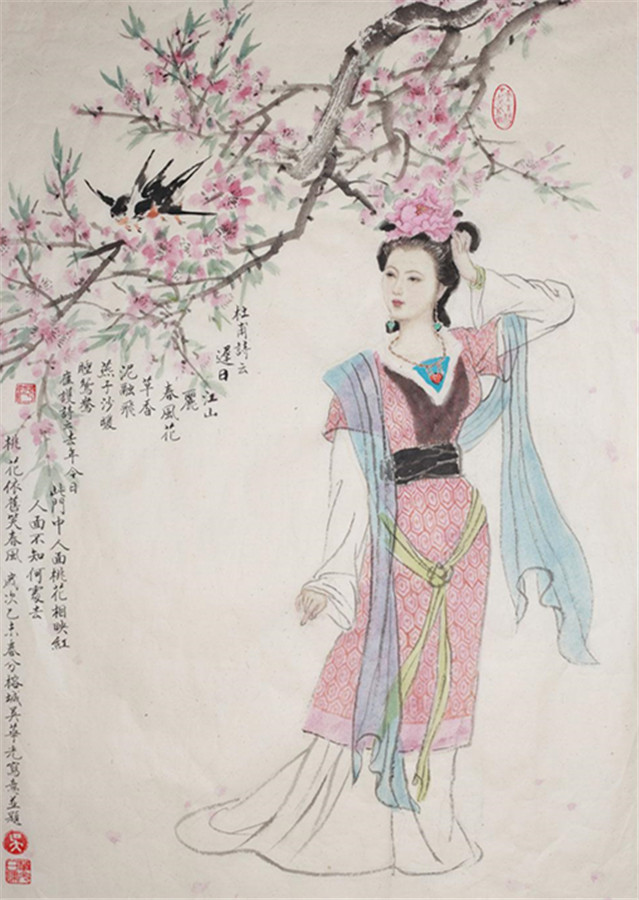 杜甫詩云
遲日
江山
麗
春風花
草香
泥融飛
燕子沙暖
睡鴛鴦
崔護詩云去年今日
此門中人面桃花相映紅
人面不知何處去
桃花依舊笑春風 歲次己未春分榕城吳華光寫意並題
吳